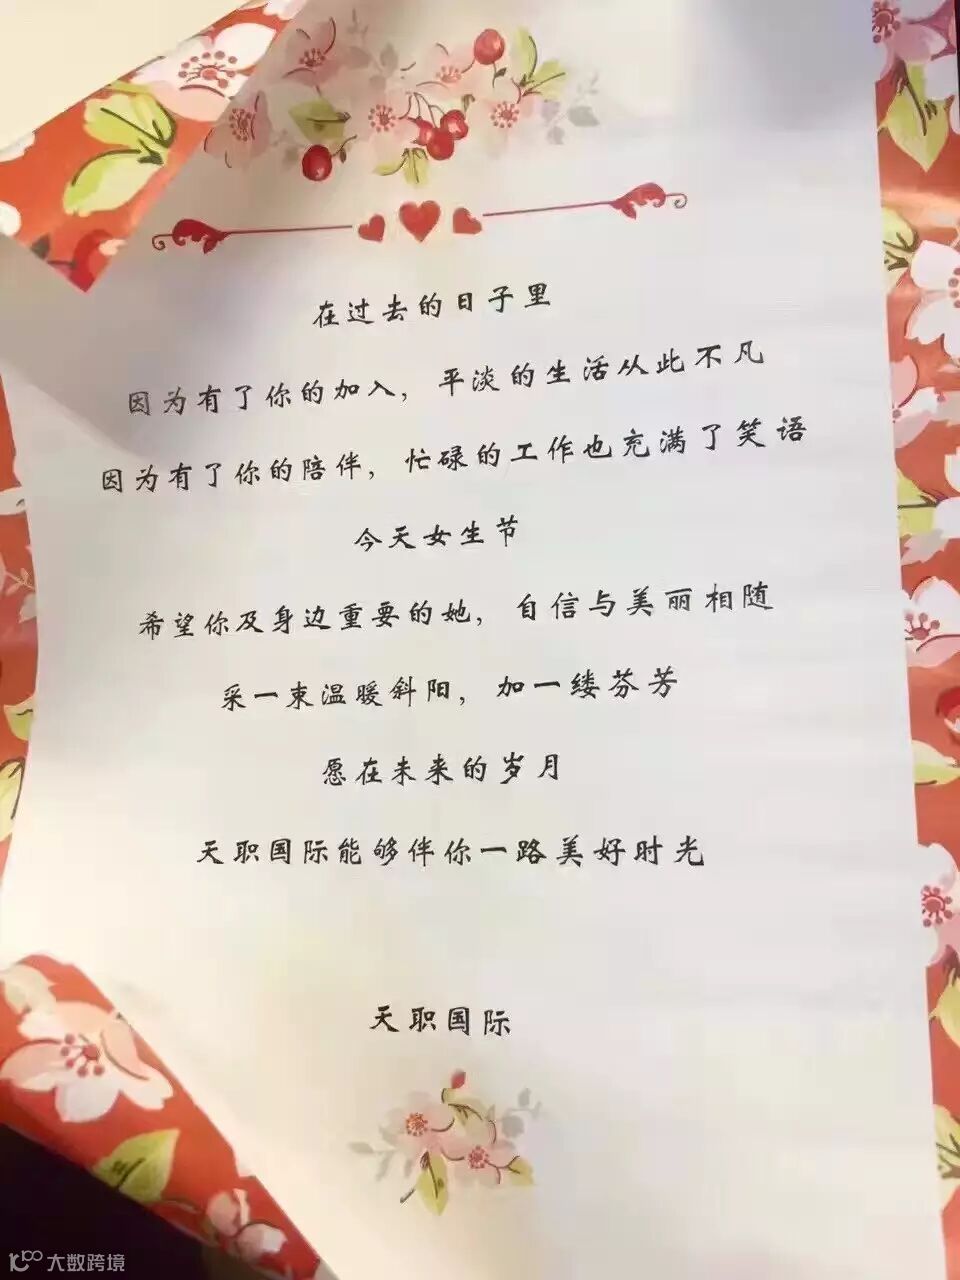 在过去的日子里
因为有了你的加入，平淡的生活从此不凡
因为有了你的陪伴，忙碌的工作也充满了笑语
今天女生节
希望你及身边重要的她，自信与美丽相随
采一束温暖斜阳，加一缕芬芳
愿在未来的岁月
天职国际能够伴你一路美好时光
天职国际
大数跨境